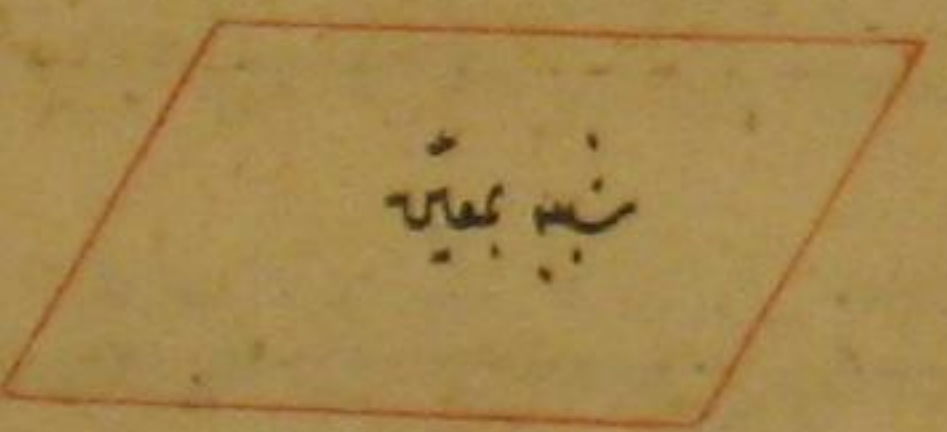 شبيه بمعيّن